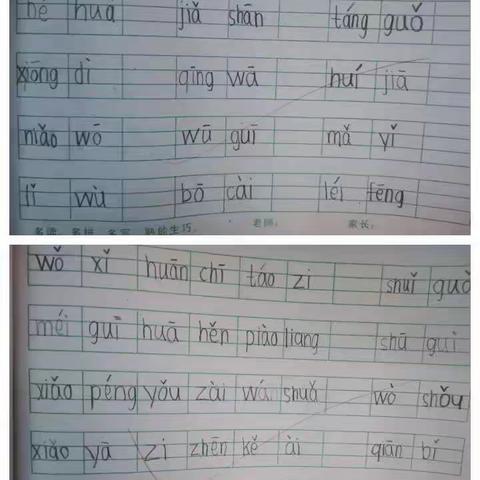 hé huā jiǎ shān táng guǒ
xiōng dì qīng wā huí jiā
niǎo wō wū guī mǎ yǐ
lǐ wù bō cài léi fēng
多读,多拼,多写,熟能生巧. 老师: 家长:
wǒ xǐ huān chī táo zi shuǐ guǒ
méi guī huā hěn piào liang shū guì
xiǎo péng yǒu zài wán shuǎ wò shǒu
xiǎo yā zi zhēn kě ài qiān bǐ